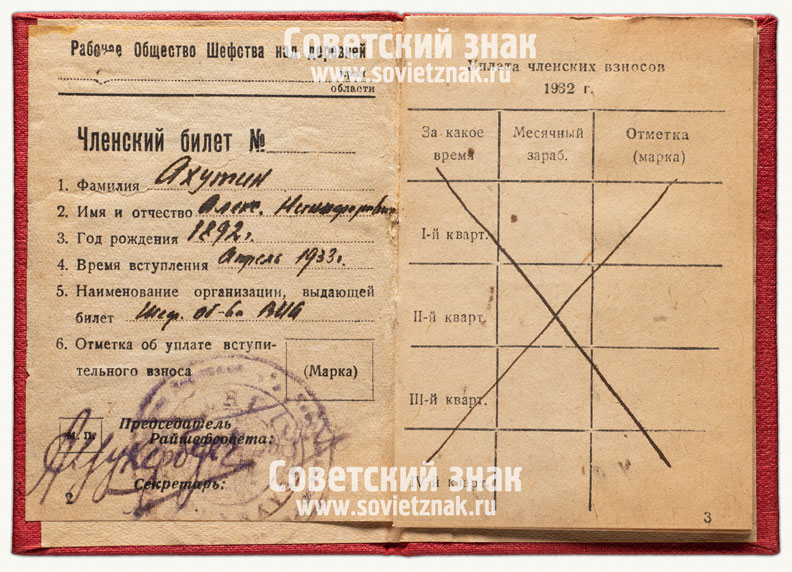 Рабочее Общество Шефства над деревней
области
Членский билет №
1. Фамилия Ахутин
2. Имя и отчество Алекс.
3. Год рождения 1892 г.
4. Время вступления Апрель 1933 г.
5. Наименование организации, выдающей
билет Шеф. об-ва
6. Отметка об уплате вступи-
тельного взноса
(Марка)
м. п.
Председатель
Райшефсовета:
Секретарь:
2
Уплата членских взносов
1932 г.
За какое
время
Месячный
зараб.
Отметка
(марка)
I-й кварт.
II-й кварт.
III-й кварт.
IV-й кварт.
3
Советский знак
www.sovietznak.ru
Советский знак
www.sovietznak.ru